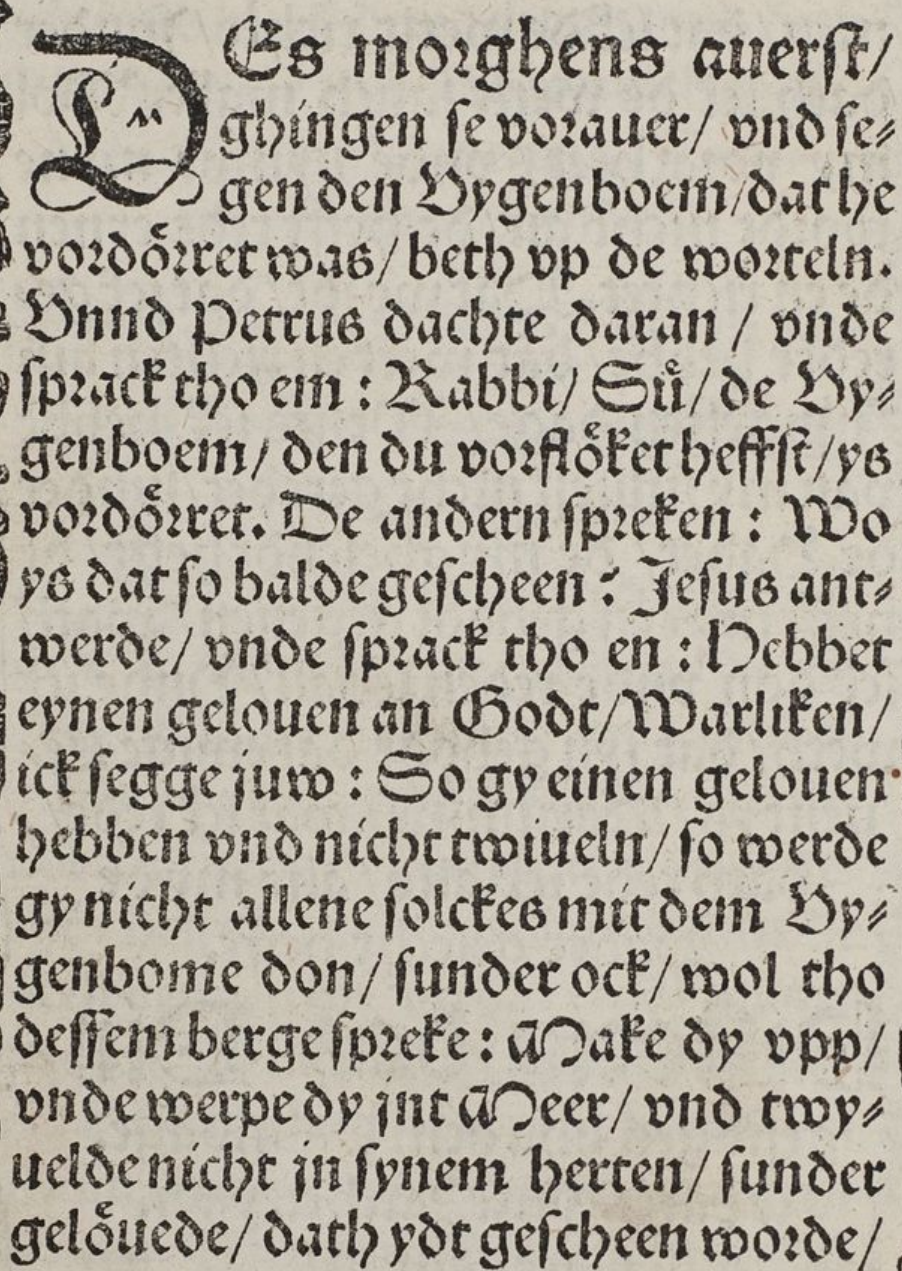 DEs morghens auerst/
ghingen se vorauer/ vnd se⸗
gen den Vygenboem/dat he
vordoͤrret was/ beth vp de worteln.
Vnnd Petrus dachte daran / vnde
sprack tho em : Rabbi/ Suͤ/ de Vy⸗
genboem/ den du vorfloͤket heffst/ys
vordoͤrret. De andern spreken : Wo
ys dat so balde gescheen? Jesus ant⸗
werde/ vnde sprack tho en : Hebbet
eynen gelouen an Godt/Warliken/
ick segge juw : So gy einen gelouen
hebben vnd nicht twiueln/ so werde
gy nicht allene solckes mit dem Vy⸗
genbome don/ sunder ock/ wol tho
dessem berge spreke : Make dy vpp/
vnde werpe dy jnt Meer/ vnd twy⸗
uelde nicht jn synem herten/ sunder
geloͤuede/ dath ydt gescheen worde/